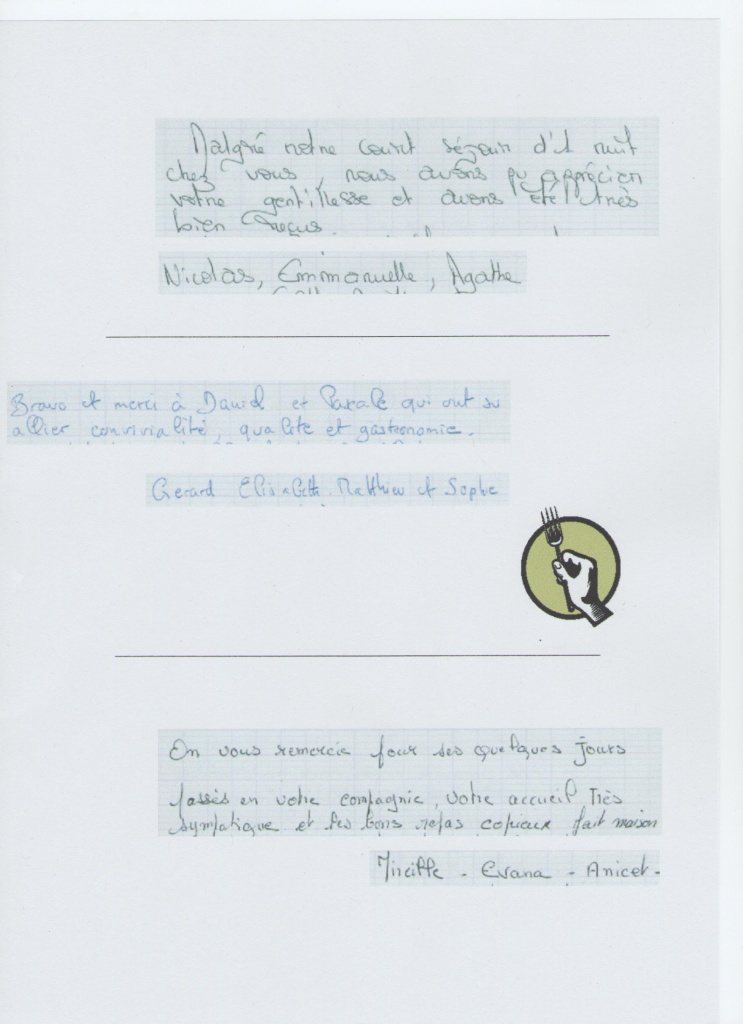 Malgré notre court séjour d'1 nuit
chez vous, nous avons pu apprécier
votre gentillesse et avons été très
bien reçus.
Nicolas, Emmanuelle, Agathe
Bravo et merci à David et Pascale qui ont su
allier convivialité, qualité et gastronomie.
Gerard Elisabeth Matthieu et Sophie
On vous remercie pour ses quelques jours
passés en votre compagnie, votre accueil très
sympatique et les bons repas copieux fait maison
Mireille - Evana - Anicet -